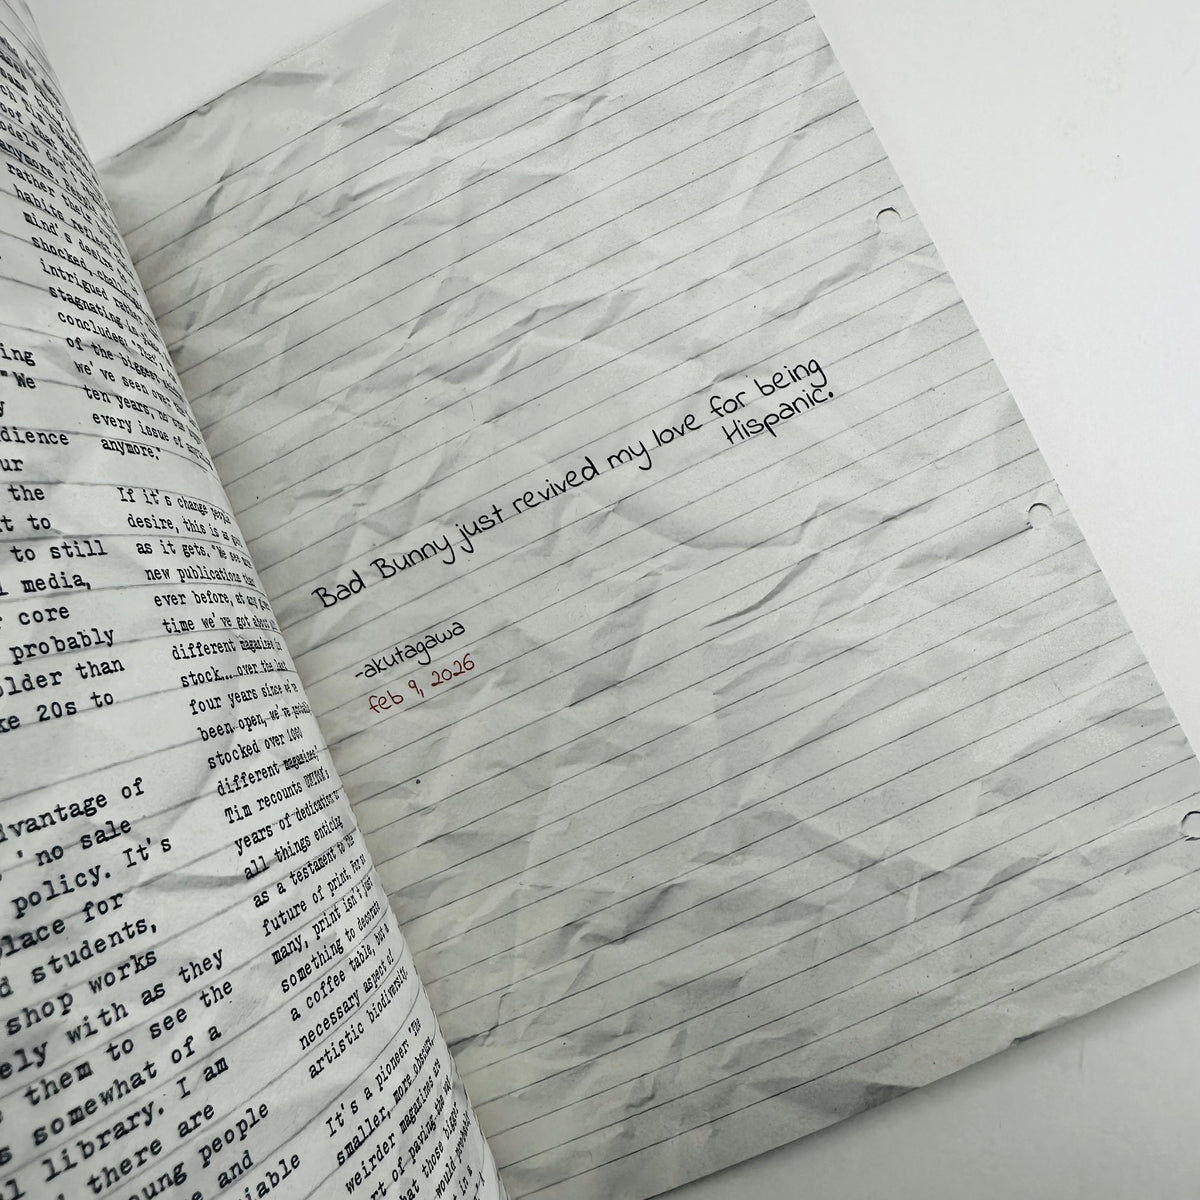 ing
"We
y
dience
ur
the
t to
to still
l media,
core
probably
lder than
ke 20s to
vantage of
'no sale
policy. It's
lace for
d students,
shop works
ely with as they
them to see the
s somewhat of a
l library. I am
there are
oung people
e and
iable
rather their
habits reflect
mind's desire
shocked,
intrigued rather
stagnating in
concludes:
of the biggest
we've seen over
ten years, no
every issue of
anymore."
If it's change people
desire, this is as
as it gets. "We see
new publications than
ever before, at any given
time we've got about
different magazines in
stock... over the last
four years since we've
been open, we've probably
stocked over 1000
different magazines,"
Tim recounts
years of dedication to
all things enticing
as a testament to the
future of print. For
many, print isn't just
something to decorate
a coffee table, but a
necessary aspect of
artistic biodiversity.
It's a pioneer: "The
smaller, more obscure,
weirder magazines are
rt of paving the way
hat those bigger
would
Bad Bunny just revived my love for being
Hispanic.
-akutagawa
feb 9, 2026